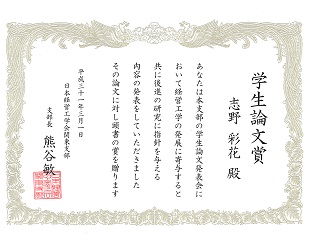 学生論文賞
志野 彩花 殿
あなたは本支部の学生論文発表会に
おいて経営工学の発展に寄与すると
共に後進の研究に指針を与える
内容の発表をしていただきました
その論文に対し頭書の賞を贈ります
平成三十一年三月一日
日本経営工学会関東支部
支部長 熊谷 敏